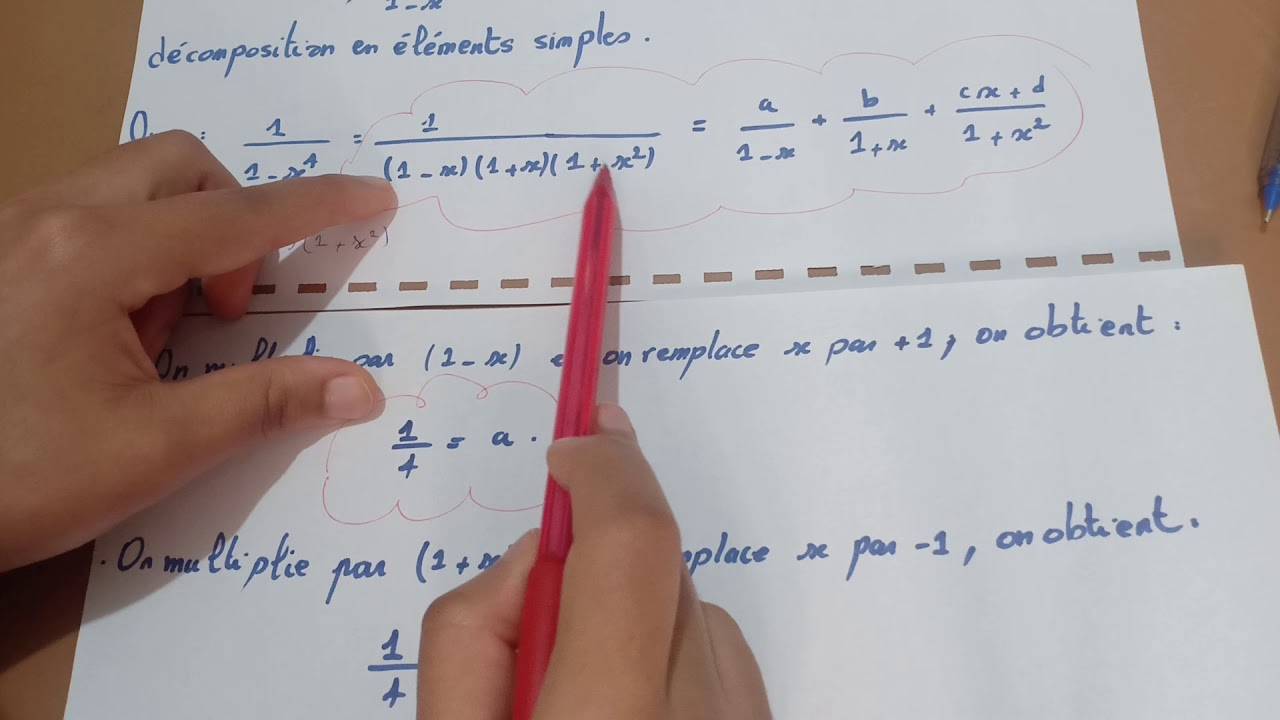 1-x
décomposition en éléments simples.
: 1/(1-x⁴) = 1/((1-x)(1+x)(1+x²)) = a/(1-x) + b/(1+x) + (cx+d)/(1+x²)
(1+x²)
On par (1-x) on remplace x par +1, on obtient :
1/4 = a.
. On multiplie par (1+x x par -1, on obtient.
1/4